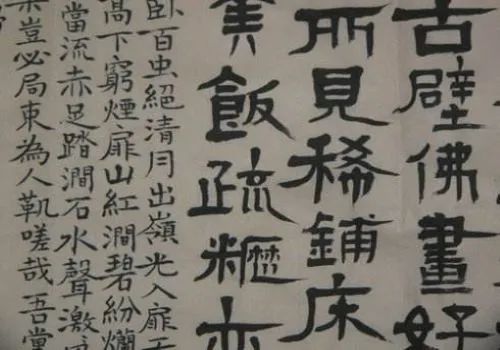 古壁佛畫好
所見稀鋪床
羹飯疏糲亦
臥百虫絕清月出嶺光入扉天
高下窮煙扉山紅澗碧紛爛
當流赤足踏澗石水聲激
樂豈必局束為人鞿嗟哉吾黨